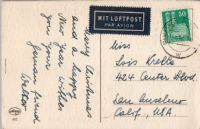 Merry Christmas
and a happy
New Year wishes
you your
German friend
Walter
MIT LUFTPOST
PAR AVION
50
Miss
Lois Krelle
424 Center Blvd.
San Anselmo
Calif., USA.